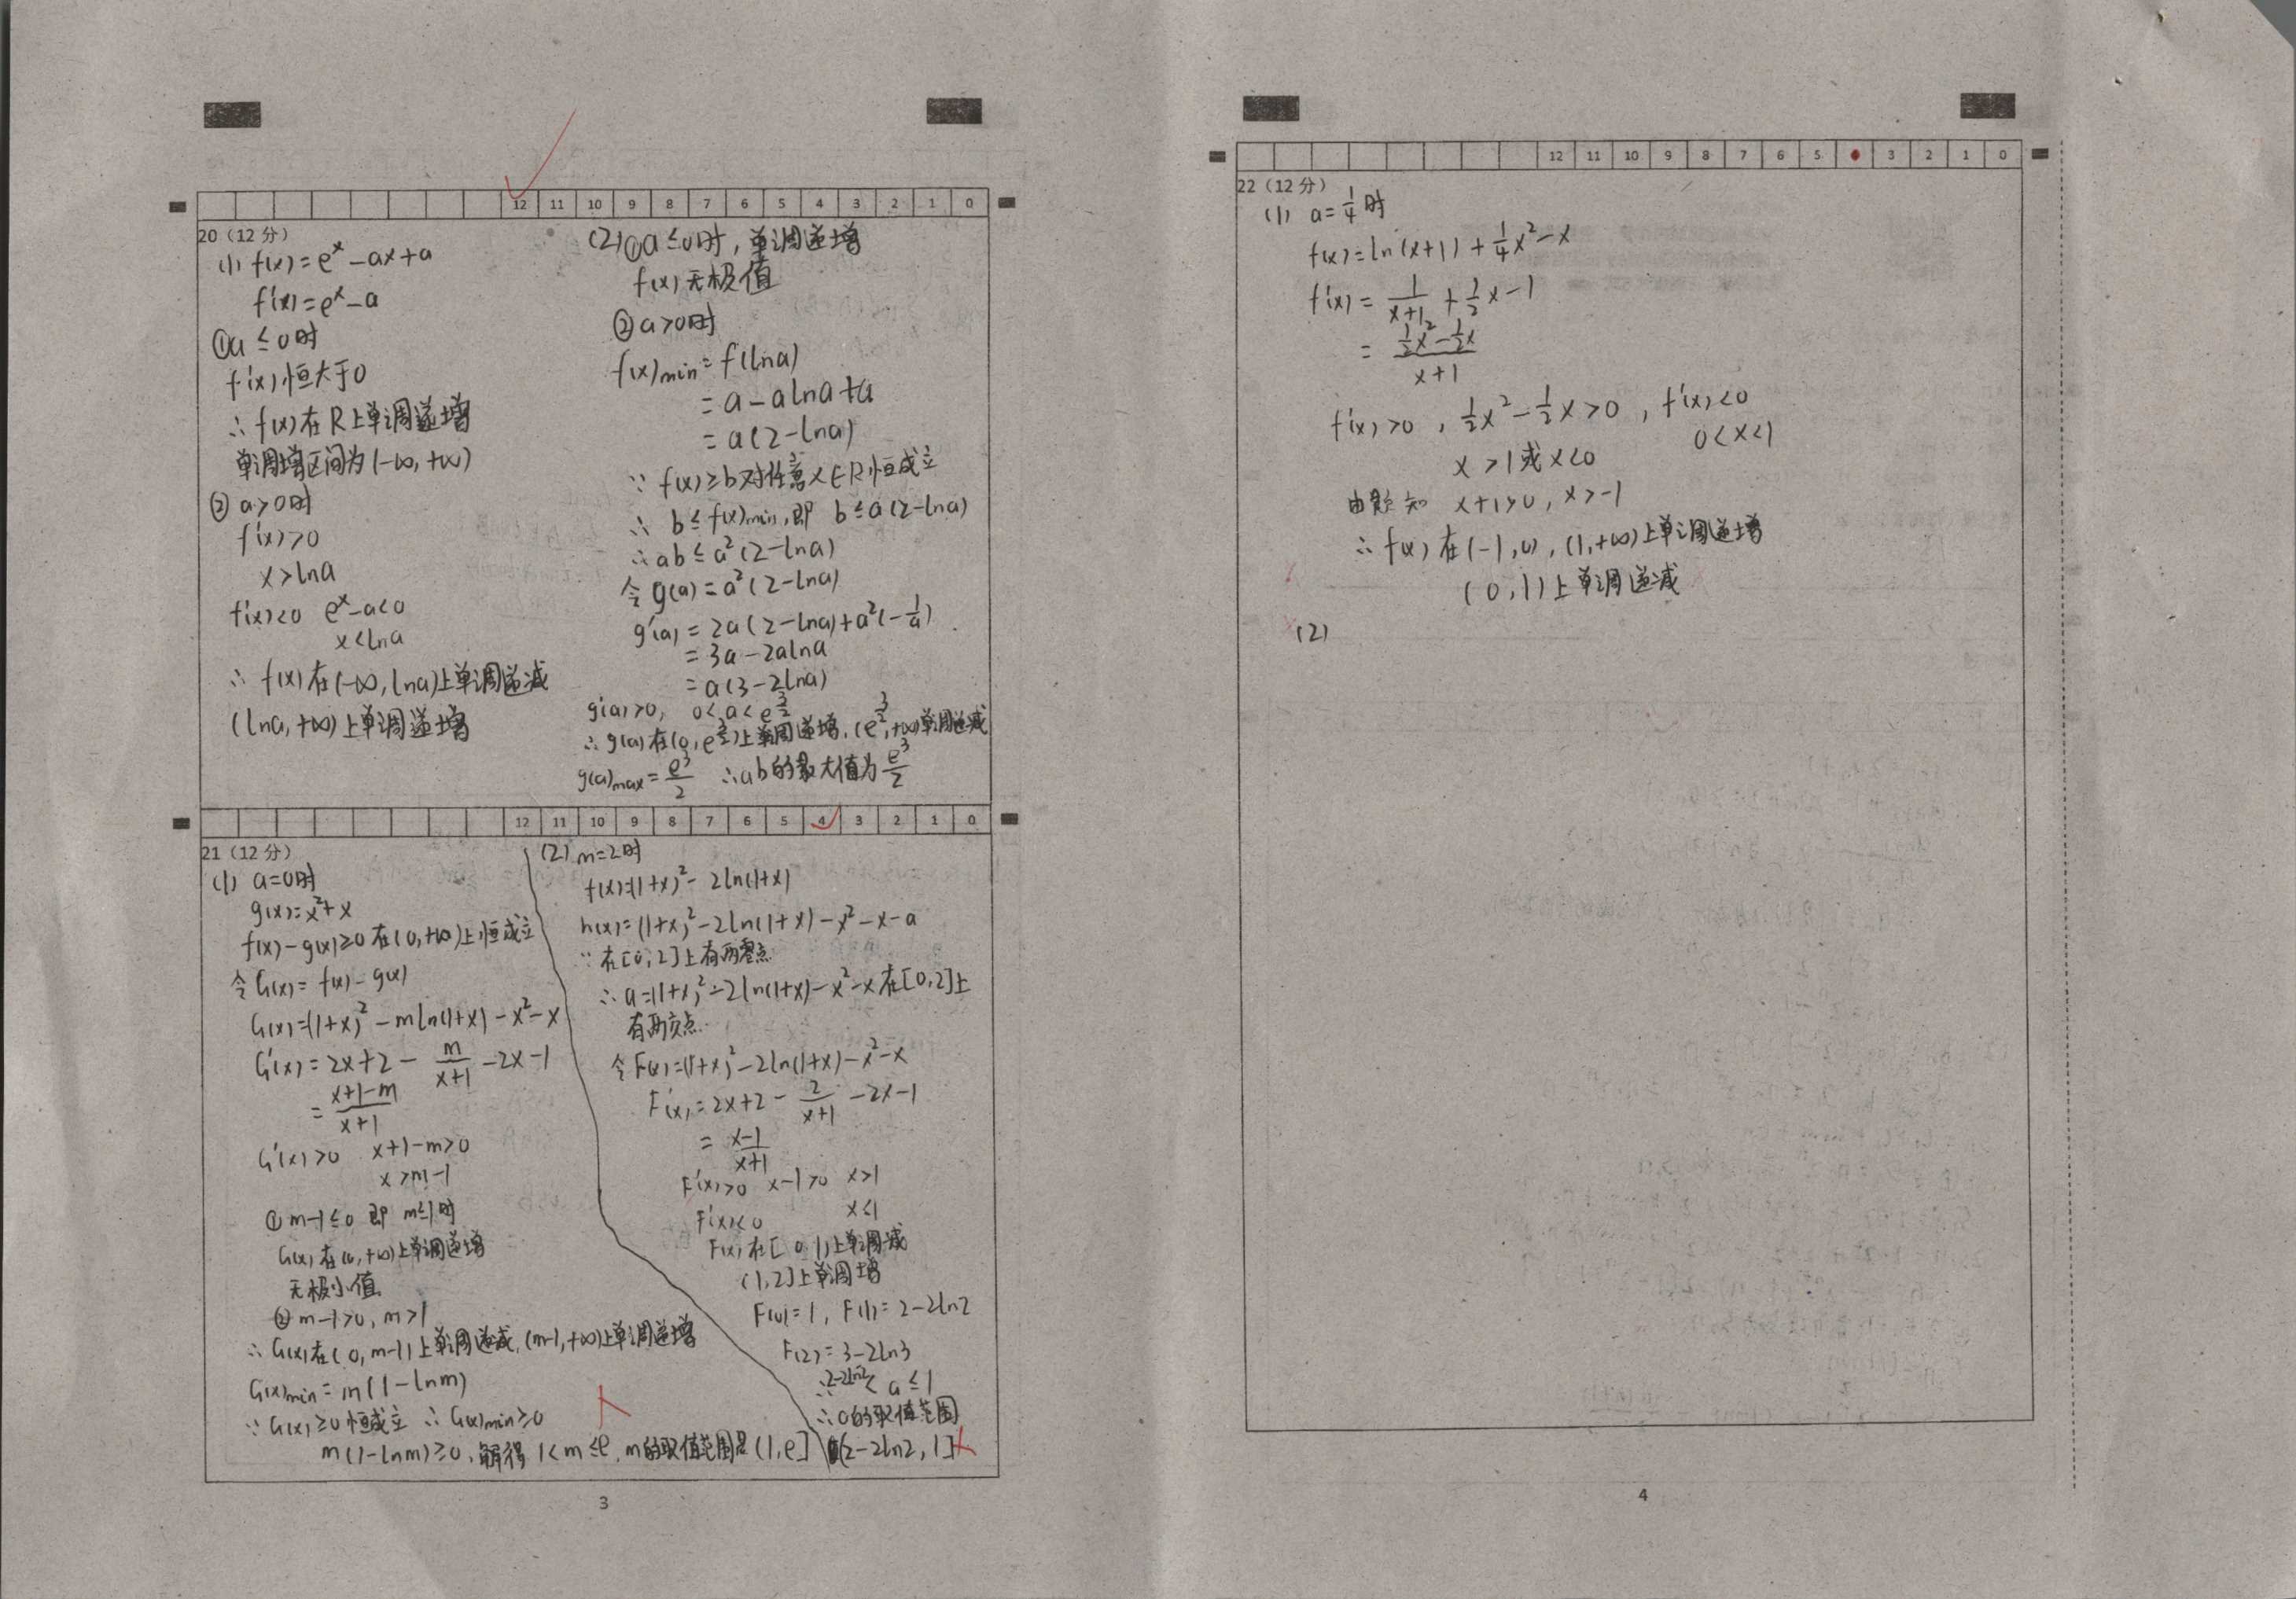 12 11 10 9 8 7 6 5 4 3 2 1 0
20（12 分）
(1) f(x)=e^x-ax+a
f'(x)=e^x-a
①a≤0时
f'(x)恒大于0
∴f(x)在R上单调递增
单调增区间为(-∞,+∞)
② a>0时
f'(x)>0
x>lna
f'(x)<0 e^x-a<0
x<lna
∴ f(x)在(-∞,lna)上单调递减
(lna,+∞)上单调递增
(2)①a≤0时，单调递增
f(x)无极值
②a>0时
f(x)min=f(lna)
=a-alna+a
=a(2-lna)
∵ f(x)≥b对任意x∈R恒成立
∴ b≤f(x)min,即 b≤a(2-lna)
∴ab≤a²(2-lna)
令g(a)=a²(2-lna)
g'(a)=2a(2-lna)+a²(-1/a)
=3a-2alna
=a(3-2lna)
g'(a)>0, 0<a<e^(3/2)
∴g(a)在(0,e^(3/2))上单调递增,(e^(3/2),+∞)单调递减
g(a)max=e³/2 ∴ab的最大值为e³/2
12 11 10 9 8 7 6 5 4 3 2 1 0
21（12 分）
(1) a=0时
g(x)=x²+x
f(x)-g(x)≥0在(0,+∞)上恒成立
令G(x)=f(x)-g(x)
G(x)=(1+x)²-mln(1+x)-x²-x
G'(x)=2x+2-m/(x+1)-2x-1
=(x+1-m)/(x+1)
G'(x)>0 x+1-m>0
x>m-1
①m-1≤0 即 m≤1时
G(x)在(0,+∞)上单调递增
无极小值
②m-1>0,m>1
∴G(x)在(0,m-1)上单调递减,(m-1,+∞)上单调递增
G(x)min=m(1-lnm)
∵G(x)≥0恒成立 ∴G(x)min≥0
m(1-lnm)≥0,解得 1<m≤e,m的取值范围是(1,e]
(2) m=2时
f(x)=(1+x)²-2ln(1+x)
h(x)=(1+x)²-2ln(1+x)-x²-x-a
∵在[0,2]上有两零点
∴a=(1+x)²-2ln(1+x)-x²-x在[0,2]上
有两交点
令F(x)=(1+x)²-2ln(1+x)-x²-x
F'(x)=2x+2-2/(x+1)-2x-1
=(x-1)/(x+1)
F'(x)>0 x-1>0 x>1
F'(x)<0 x<1
F(x)在[0,1)上单调减
(1,2]上单调增
F(0)=1,F(1)=2-2ln2
F(2)=3-2ln3
∴2-2ln2<a≤1
∴a的取值范围
(2-2ln2,1]
3
12 11 10 9 8 7 6 5 3 2 1 0
22（12 分）
(1) a=1/4时
f(x)=ln(x+1)+1/4x²-x
f'(x)=1/(x+1)+1/2x-1
=(1/2x²-1/2x)/(x+1)
f'(x)>0,1/2x²-1/2x>0,f'(x)<0
x>1或x<0 0<x<1
由题知 x+1>0,x>-1
∴f(x)在(-1,0),(1,+∞)上单调递增
(0,1)上单调递减
(2)
4